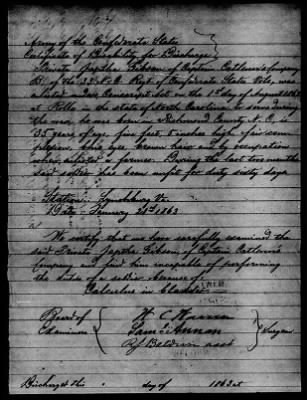 Army of the Confederate States
Certificate of Disability for Discharge
Private Jepthe Gibson of Captain Cathran's Company
of the 33 N.C. Regt. of Confederate State Vols, was
on the 1st day of August 1862
at in the state of North Carolina to serve during
the war, he was born in Richmond County N.C., is
35 years of age, five feet, 8 inches high, fair com
plexion, blue eyes, brown hair and by occupation
when enlisted a farmer. During the last two months
said soldier has been unfit for duty sixty days
Station: Lynchburg Va.
Date 1863
We certify that we have carefully examined the
said Private Jepthe Gibson of Captain
Company and find him incapable of performing
the duties of a soldier because of
Calculus in Bladder
Board of
Examiners
W. C. Warren
Saml. Annan
Baldwin asst
Surgeon
Discharged this day of 1863 at